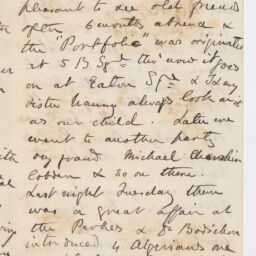 pleasant to see old friends
after 6 months absence &
the "Portfolio" was originated
at 5 B Sqre tho' now it goes
on at Eaton Sqre & I & my
sister Nanny always look at it
as our child. Later we
went to another party
very grand Michael Chevalier
Cobden & so on there.
Last night Tuesday there
was a great affair at
the Parkes & Dr Bodichon
introduced 4 Algerians one